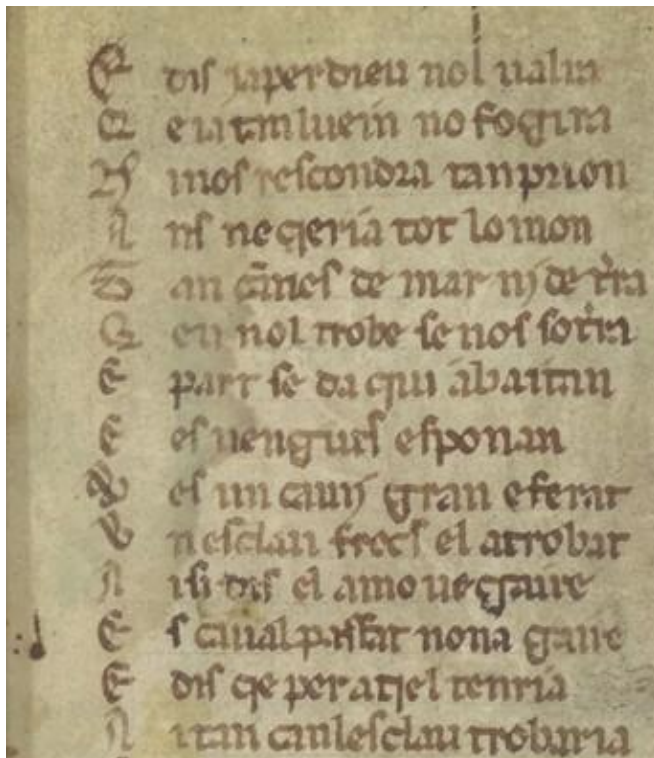 E dis ja per dieu nol ualra
Q e ia tan luein no fogira
N i nos rescondra tan prion
A ns ne qeria tot lo mon
T an cānes de mar nj de t'ra
Q eu nol trobe se nos sot'ra
E part se da qui abaitan
E es uenguts esponan
V es un camj gran e ferat
V n esclau frecs el a trobat
A isi dis el amo ueggaire
E s caual passat nona gaire
E dis qe per aqel tenria
A itan can lesclau trobaria